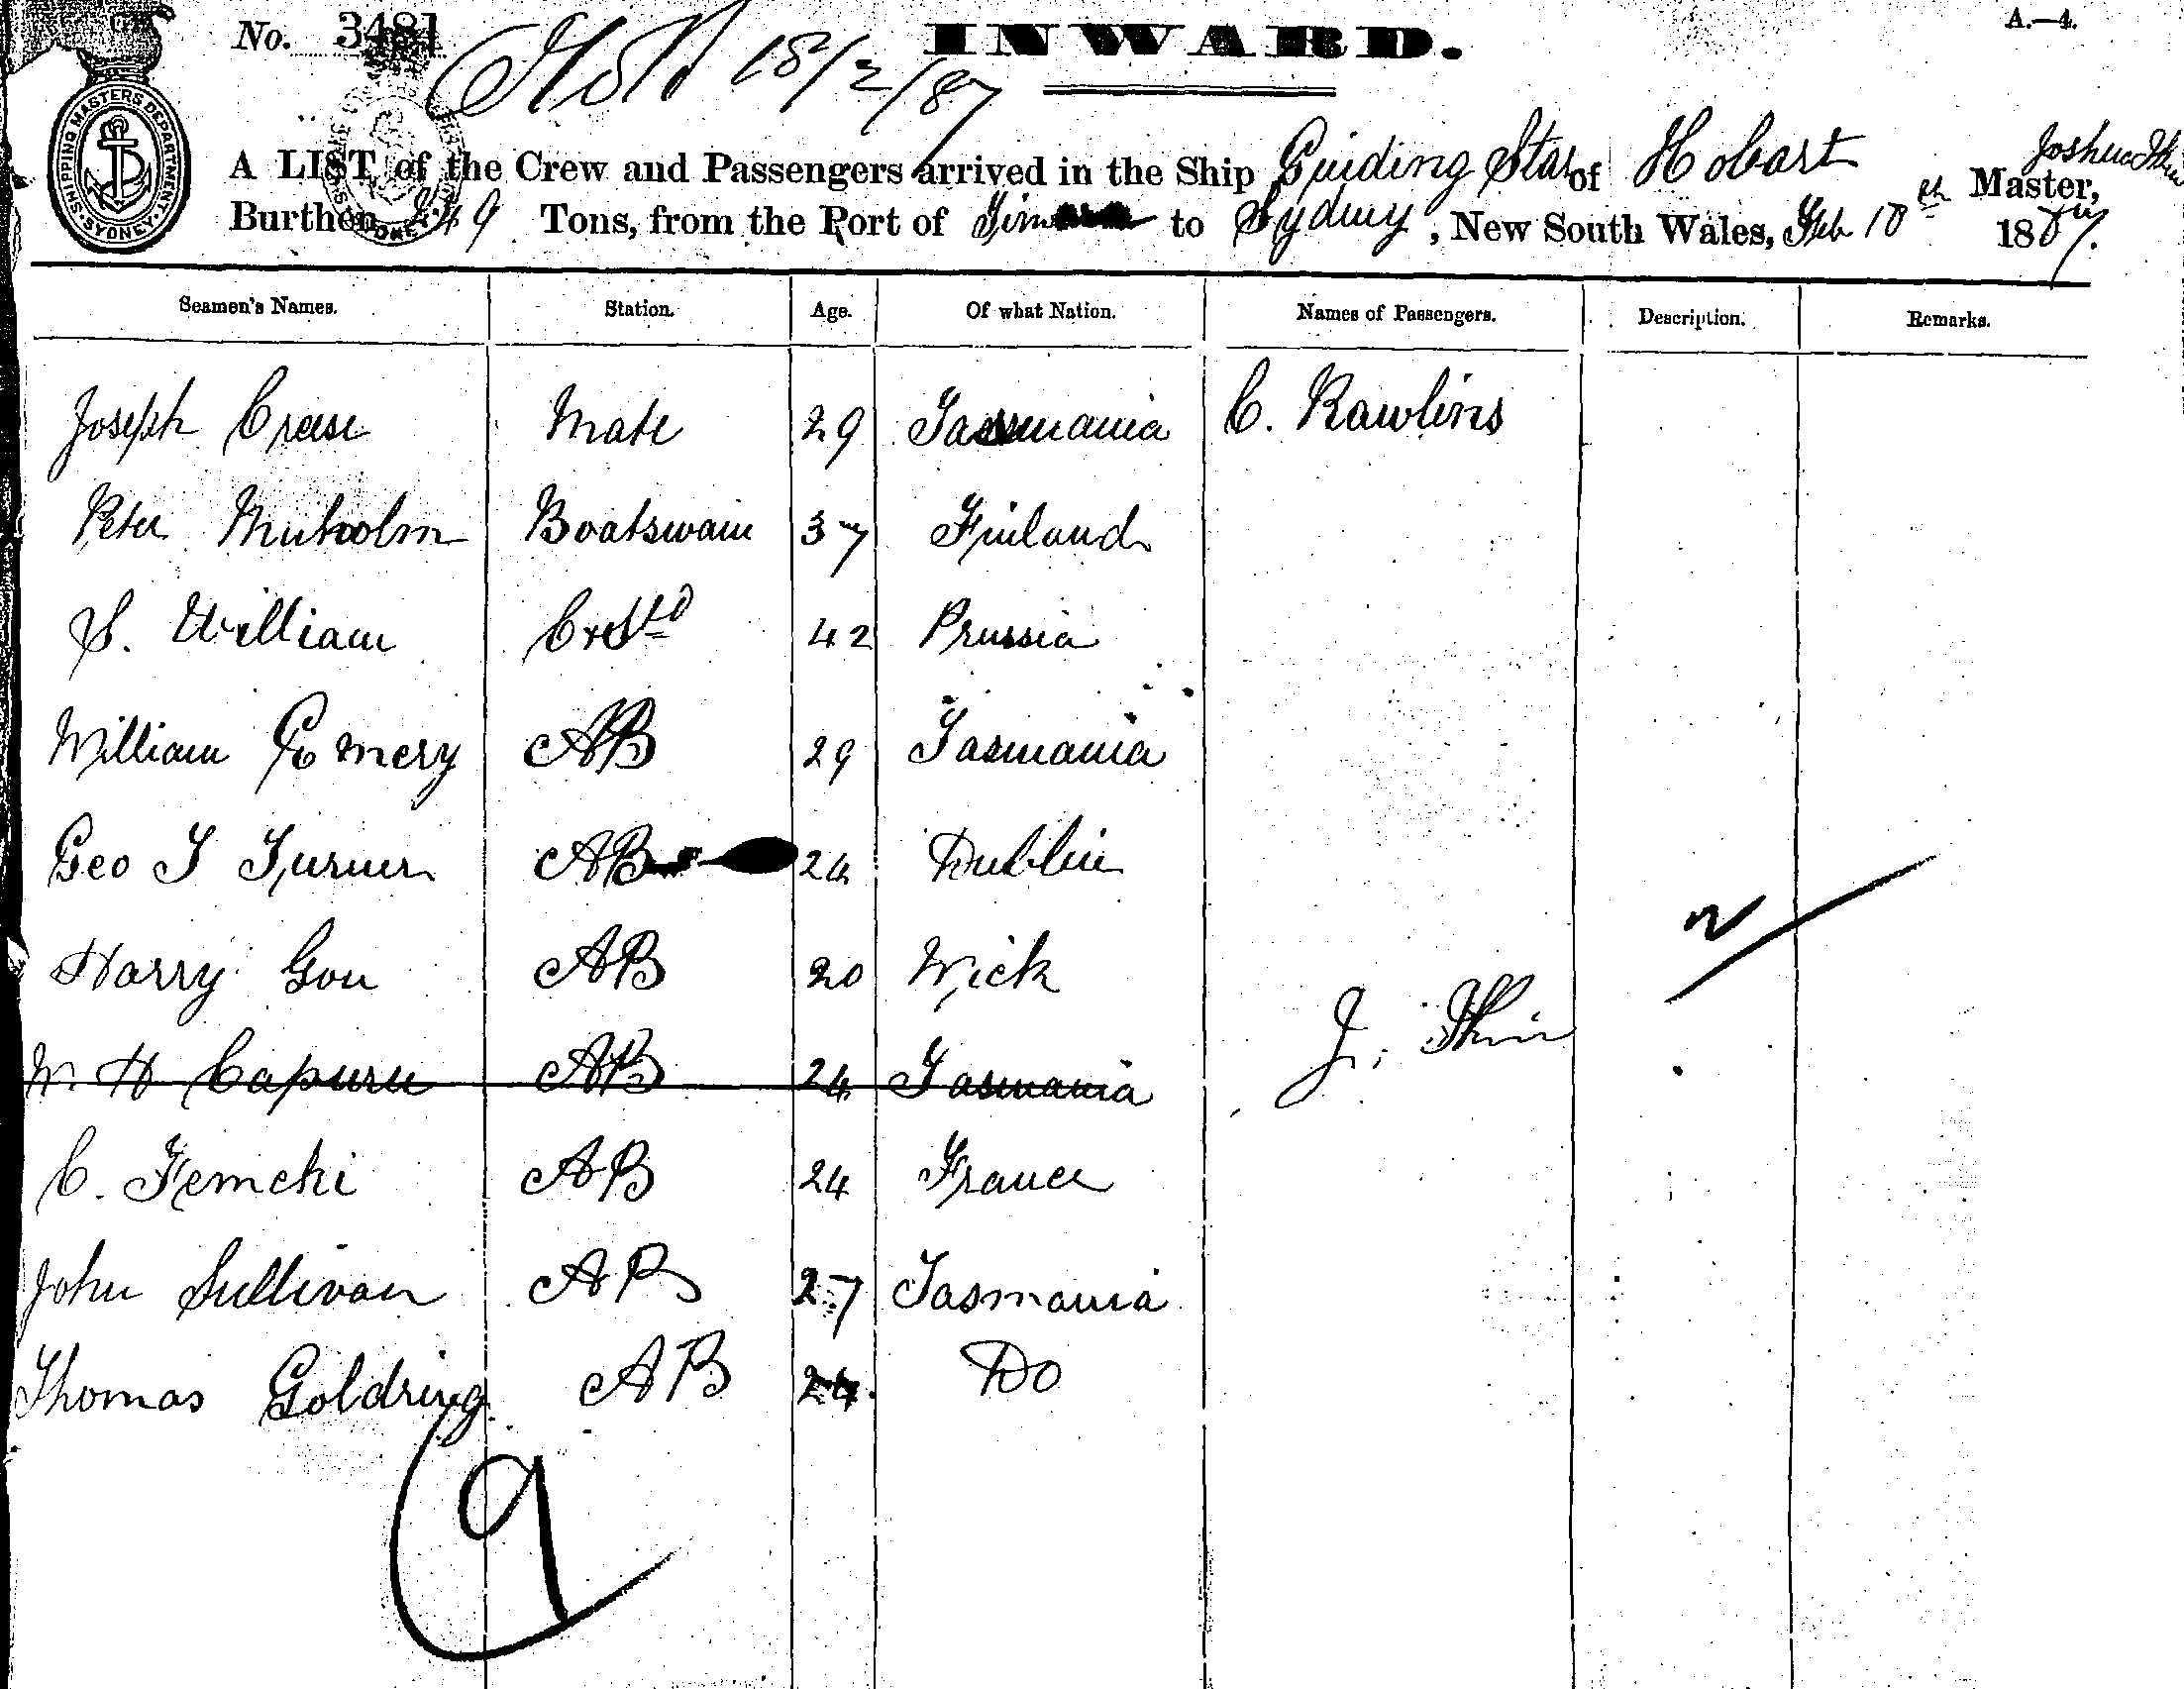 No. 3481
INWARD.
A.—4.
18/2/87
SHIPPING MASTERS DEPARTMENT. SYDNEY.
A LIST of the Crew and Passengers arrived in the Ship Guiding Star of Hobart Joshua Master,
Burthen 249 Tons, from the Port of to Sydney, New South Wales, Feb 10th 1887.
Seamen's Names. Station. Age. Of what Nation. Names of Passengers. Description. Remarks.
Joseph Crease Mate 29 Tasmania C. Rawlins
Peter Boatswain 37 Finland
S. William 42 Prussia
William Emery AB 29 Tasmania
Geo T Turner AB 24 Dublin
Harry AB 20 Wick
W H AB 24 Tasmania
J.
C. AB 24 France
John Sullivan AB 27 Tasmania
Thomas Goldring AB 24. Do
9